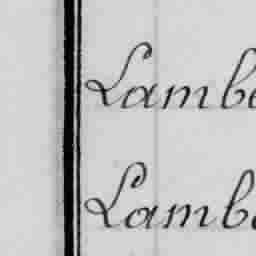 Lambe
Lambe